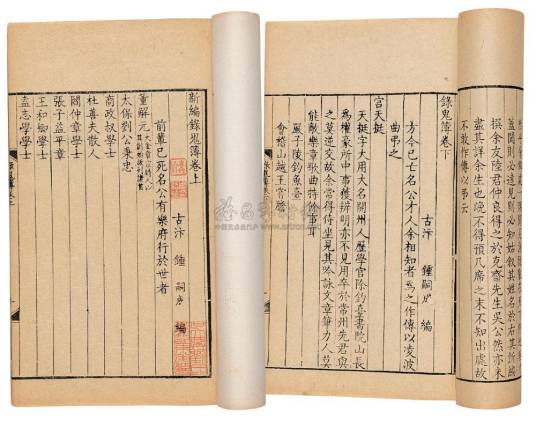 新編錄鬼簿卷上
古汴 鍾 嗣成 編
前輩已死名公有樂府行於世者
董解元
太保劉公秉忠
商政叔學士
杜善夫散人
閻仲章學士
張子益平章
王和卿學士
盍志學學士
蓋聞則必達見則必知姑敘其姓名於右其所編
撰余友陸君仲良得之於克齋先生吳公然亦未
盡其詳余生也晚不得預几席之末不知出處故
不敢作傳以弔云
錄鬼簿卷下
古汴 鍾 嗣成 編
方今已亡名公才人余相知者為之作傳以凌波
曲弔之
宮天挺
天挺字大用大名開州人歷學官除釣臺書院山長
為權豪所中事獲辨明亦不見用卒於常州先君與
之莫逆交故余常得侍坐見其吟詠文章筆力人莫
能敵樂章歌曲特餘事耳
嚴子陵釣魚臺
會稽山越王嘗膽